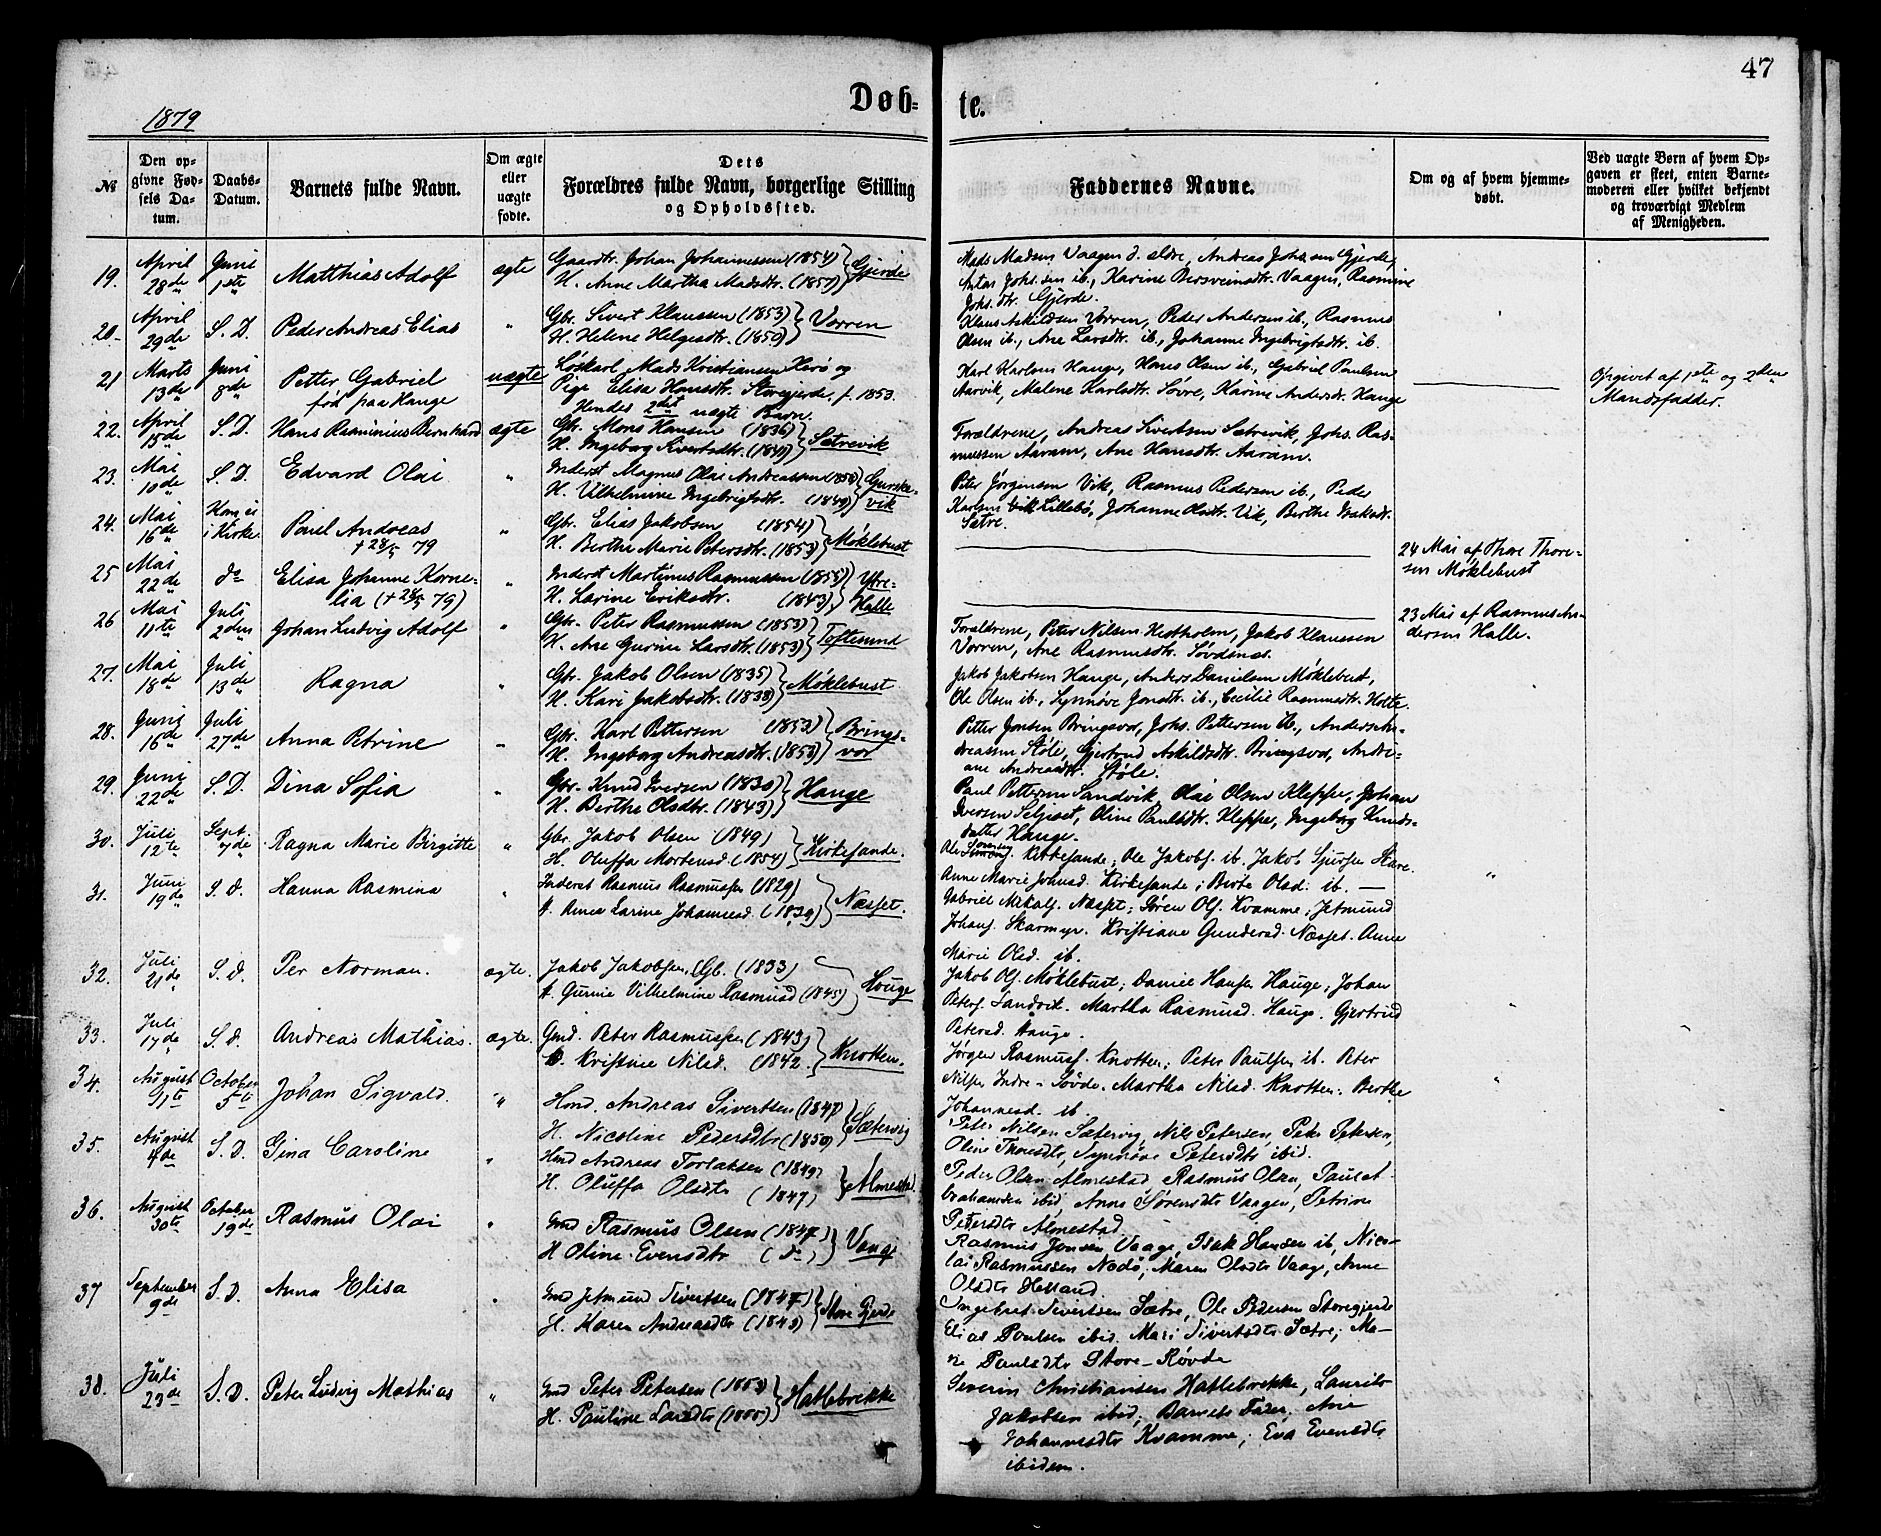 47
Døb-
te.
1879
№
Den op-
givne Fød-
sels Da-
tum.
Daabs-
Datum.
Barnets fulde Navn.
Om ægte
eller
uægte
fødte.
Dets
Forældres fulde Navn, borgerlige Stilling
og Opholdssted.
Faddernes Navne.
Om og af hvem hjemme-
døbt.
Ved uægte Børn af hvem Op-
gaven er skeet, enten Barne-
moderen eller hvilket bekjendt
og troværdigt Medlem
af Menigheden.
19. April 28de Juni 1ste Matthias Adolf ægte
Gaardbr. Johan Johannessen (1854)
H. Anne Martha Madsdtr. (1857) Gjerde
Mads Madsen Vaagen d. ældre, Andreas Johs.sen Gjerde,
Johs.sen ib., Karine Bersveinsdtr. Vaagen, Rasmine
Johs.dtr. Gjerde.
20. April 29de S. D. Peder Andreas Elias "
Gbr. Sivert Klaussen (1853)
H. Helene Helgesdtr. (1850) Vorren
Klaus Askildsen Vorren, Peder Andersen ib., Rasmus
Olsen ib., Ane Larsdtr. ib., Johanne Ingebrigtsdtr. ib.
21 Marts 13de Juni 8de Petter Gabriel
født paa Hauge uægte
Løskarl Mads Kristiansen Herø og
Pige Elisa Hansdtr. Storegjerde f. 1853.
Hendes 2det uægte Barn.
Karl Karlsen Hauge, Hans Olsen ib., Gabriel Paulsen
Aarvik, Malene Karlsdtr. Søvre, Karine Andersdr. Hauge
Opgivet af 1ste og 2den
Mandsfadder.
22. April 15de S. D. Hans Rasminius Bernhard ægte
Gbr. Mons Hansen (1836)
H. Ingeborg Sivertsdtr. (1840) Sætrevik
Forældrene, Andreas Sivertsen Sætrevik, Johs. Ras-
mussen Aaram, Ane Hansdtr. Aaram.
23. Mai 10de S. D. Edvard Olai "
Inderst Magnus Olai Andreassen (1850)
H. Vilhelmine Ingebrigtsdtr. (1849) Gurske-
vik
Peter Jørgensen Vik, Rasmus Pedersen ib., Peder
Karlsen Lillebø, Johanne Olsdtr. Vik, Berthe Isaksdr.
Sætre.
24. Mai 16de Kom ei
i Kirke. Paul Andreas
+ 28/5 79 "
Gbr. Elias Jakobsen (1854)
H. Berthe Marie Petersdtr. (1853) Møklebust
24 Mai af Thore Thore-
sen Møklebust
25 Mai 22de do Elisa Johanne Korne-
lia (+ 28/5 79) "
Inderst Martinus Rasmussen (1855)
H. Larine Eriksdtr. (1843) Ytre-
Halle
23 Mai af Rasmus An-
dersen Halle.
26 Mai 11te Juli 2den Johan Ludvig Adolf "
Gbr. Peter Rasmussen (1853)
H. Ane Gurine Larsdtr. (1853) Toftesund
Forældrene, Peter Nilsen Hestholm, Jakob Klaussen
Vorren, Ane Rasmusdtr. Søvdsnæs.
27. Mai 18de Juli 13de Ragna "
Gbr. Jakob Olsen (1835)
H. Kari Jakobsdtr. (1838) Møklebust
Jakob Jakobsen Hauge, Anders Danielsen Møklebust,
Ole Olsen ib., Synnøve Jonsdtr. ib., Cecilie Rasmusdtr. Holte.
28. Juni 16de Juli 27de Anna Petrine "
Gbr. Karl Pettersen (1853)
H. Ingeborg Andreasdtr. (1853) Brings-
vor
Petter Jonsen Bringsvor, Johs. Pettersen ib., Anders An-
dreassen Støle, Gjertrud Askildsdtr. Bringsvor, Andri-
ane Andreasdtr. Støle.
29. Juni 22de S. D. Dina Sofia "
Gbr. Knud Iversen (1830)
H. Berthe Olsdtr. (1843) Hauge
Paul Pettersen Sandvik, Olai Olsen Kleppe, Johan
Iversen Seljeset, Oline Paulsdtr. Kleppe, Ingeborg Knuds-
datter Hauge.
30. Juli 12te Sept. 7de Ragna Marie Birgitte "
Gbr. Jakob Olsen (1849)
H. Oluffa Mortensd. (1854) Kirkesande.
Ole Kirkesande; Ole Jakobs. ib. Jakob Sjursen Hare.
Anne Marie Johnsd. Kirkesande; Birte Olsd. ib. —
31. Juni 19de S. d. Hanna Rasmina "
Inderst Rasmus Rasmussen (1829)
H. Anna Larine Johannesd. (1839) Næsset.
Gabriel Mikals. Næsset; Søren Ols. Kvamme; Jetmund
Johans. Skarmyr. Kristiane Gundersd. Næsset. Anne
Marie Olsd. ib.
32. Juli 21de S. d. Per Norman. ægte.
Jakob Jakobsen, Gb. (1833)
H. Gurine Vilhelmine Rasmusd (1845) Houge
Jakob Ols. Møklebust; Daniel Hansen Hauge; Johan
Peters. Sandvik. Martha Rasmusd. Hauge. Gjertrud
Petersd. Hauge.
33. Juli 17de S. d. Andreas Mathias. ægte.
Gmd. Peter Rasmussen (1843)
H. Kristine Nilsd. (1842 Knotten.
Jørgen Rasmuss. Knotten; Peter Paulsen ib. Peter
Nilsen Indre-Søvde. Martha Nilsd. Knotten; Berthe
Johannesd. ib.
34. August 31te October 5te Johan Sigvald. "
Hmd. Andreas Sivertsen (1847)
H. Nicoline Pedersdtr (1850) Sætervig
Peter Nilsen Sætervig, Nils Petersen, Peter Petersen,
Oline Thoresdtr, Synnøve Petersdtr ibid.
35. August 4de S. D. Gina Caroline "
Hmd Andreas Torlaksen (1849)
H. Oluffa Olsdtr (1847) Almestad
Peder Olsen Almestad, Rasmus Olsen, Paul A-
brahamsen ibid, Anne Sørensdtr Vaagen, Petrine
Petersdtr Almestad
36. August 30te October 19de Rasmus Olai "
Gmd Rasmus Olsen (1847)
H Oline Evensdtr (do) Vaage
Rasmus Jonsen Vaage, Isak Hansen ib, Nico-
lai Rasmussen Nedø, Maren Olsdtr Vaage, Anne
Olsdtr Helland.
37 September 9de S. D. Anna Elisa "
Gmd Jetmund Sivertsen (1847)
H. Karen Andreasdtr (1843) Store Gjerde
Ingebret Sivertsen Sætre, Ole Pedersen Storegjerde
Elias Poulsen ibid. Mari Sivertsdtr Sætre; Ma-
rie Paulsdtr Store-Røvde
38. Juli 23de S. D. Peter Ludvig Mathias "
Gmd Peter Petersen (1853)
H. Pauline Larsdtr (1855) Hatlebrekke
Severin Christiansen Hatlebrekke, Laurits
Jakobsen ibid; Barnets Fader, Ane
Johannesdtr Kvamme; Eva Evensdtr
ibidem.